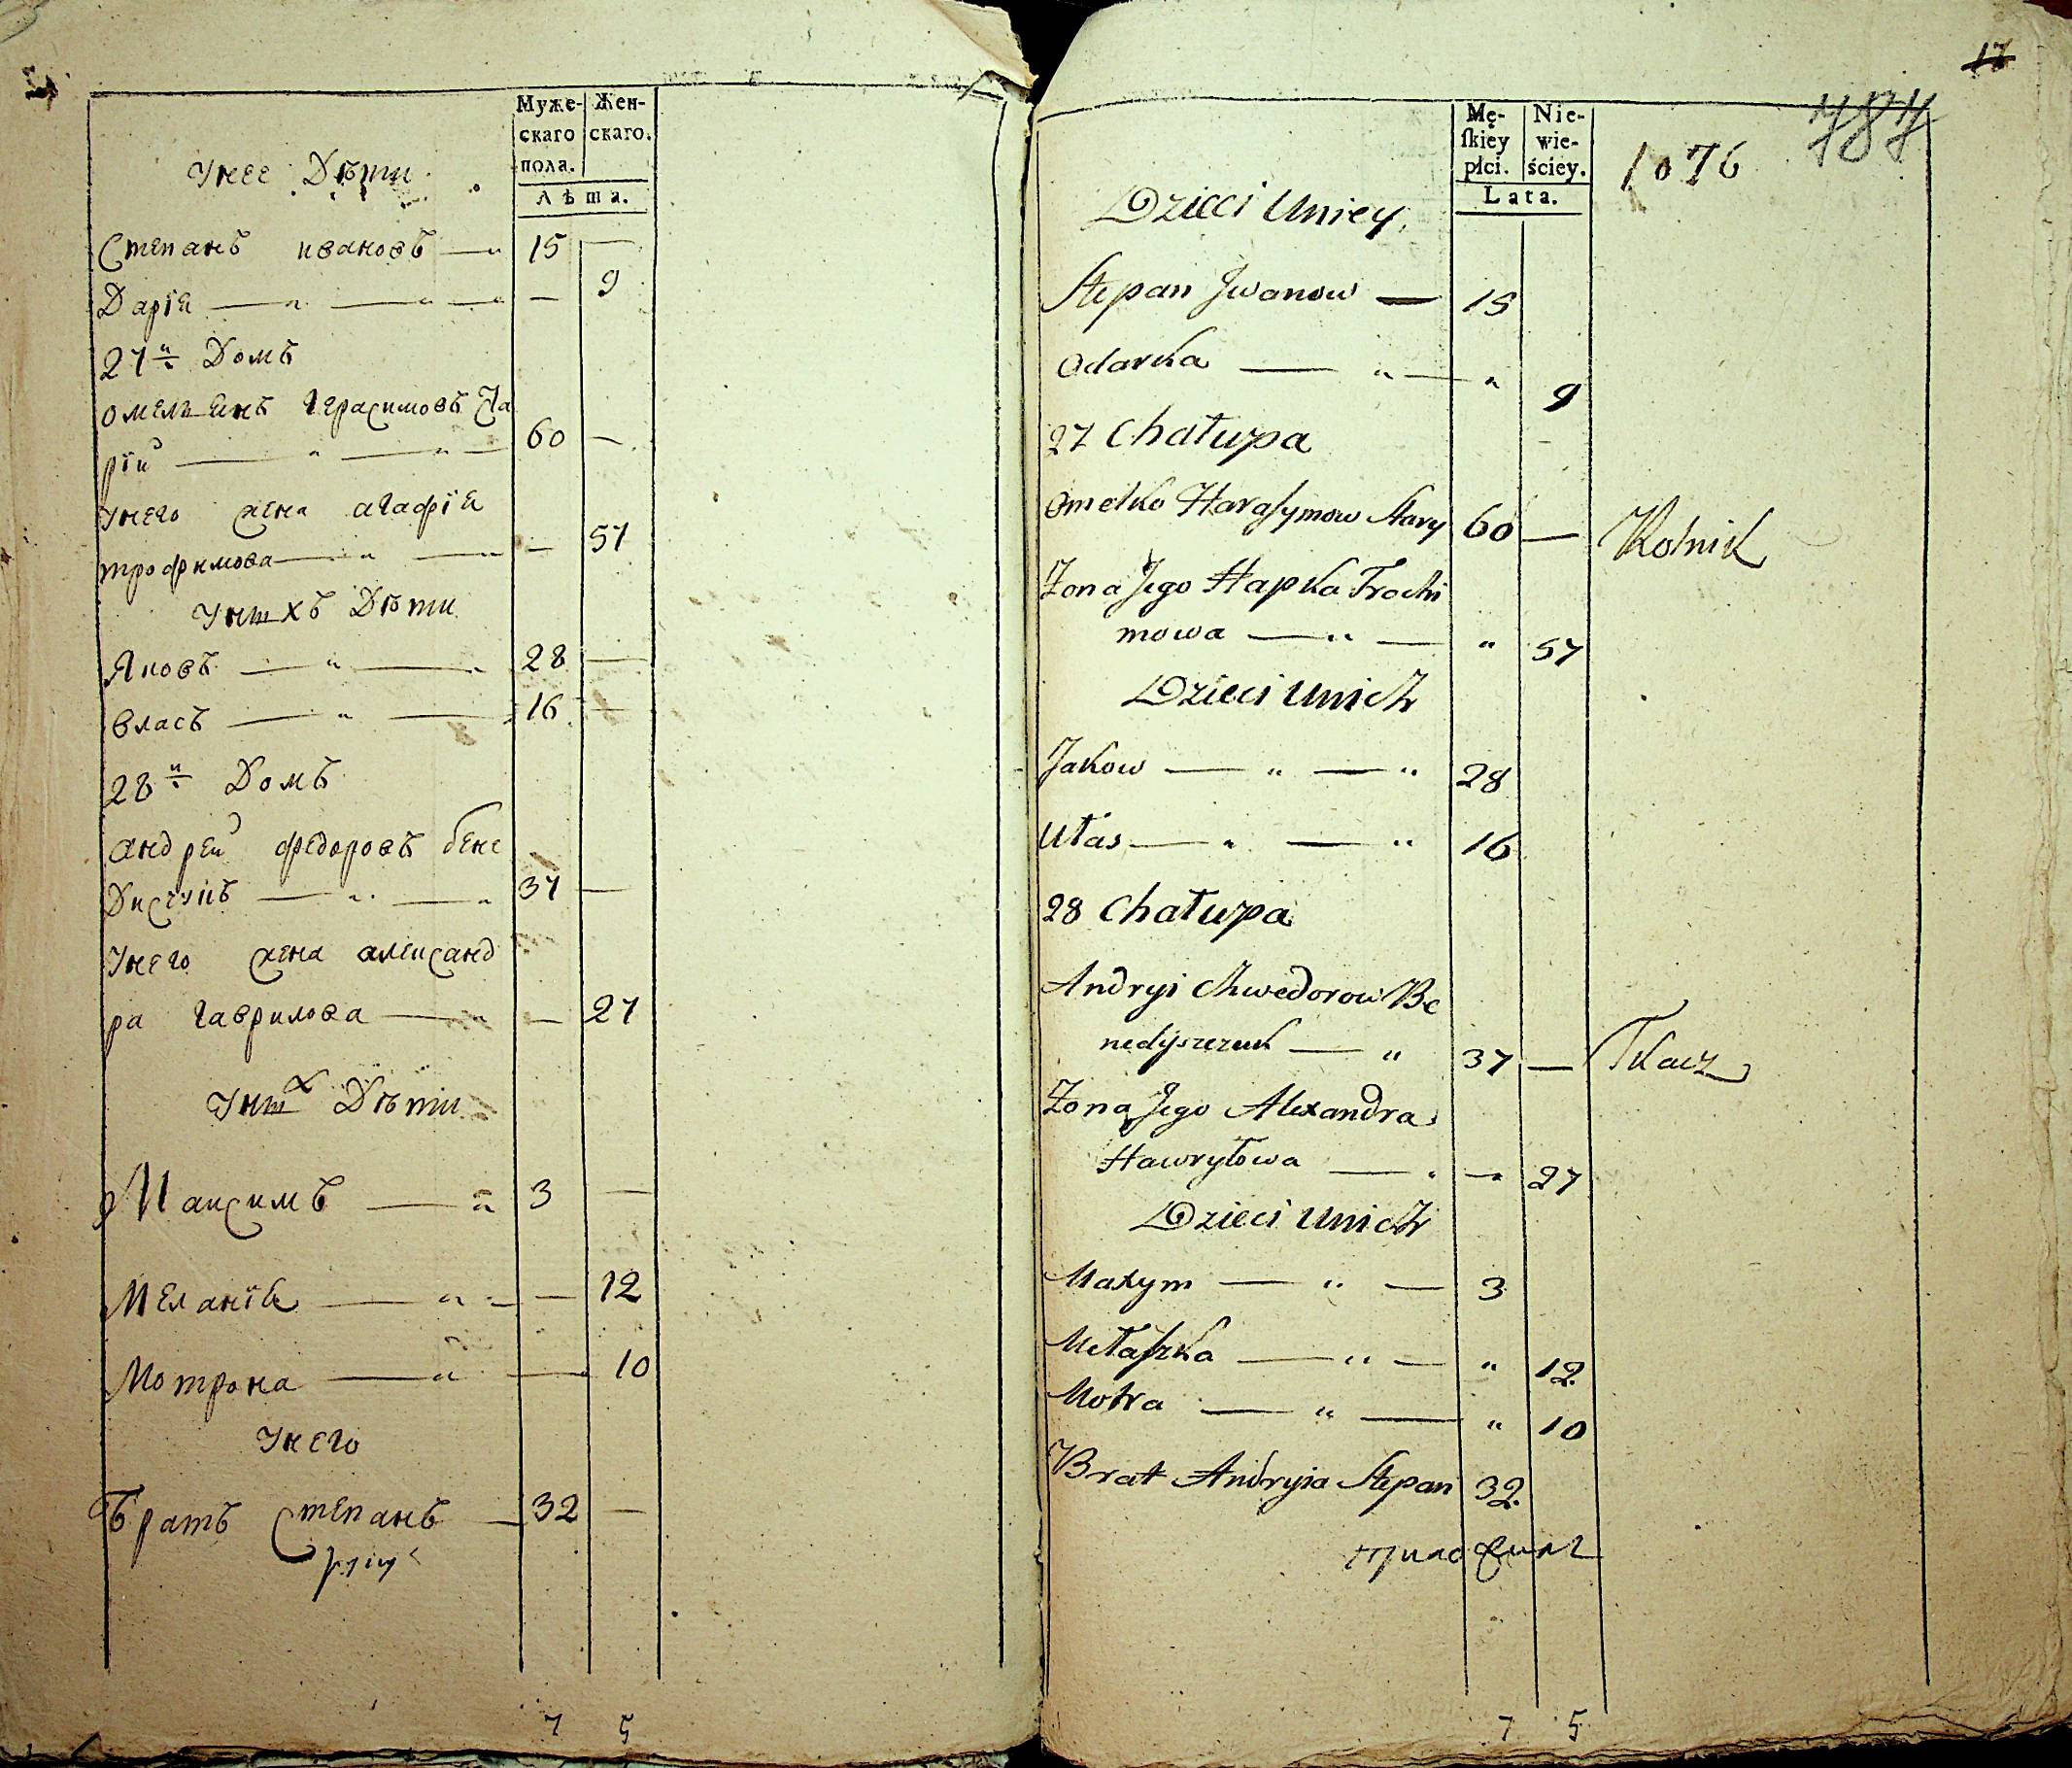 Муже-
скаго
пола.
Жен-
скаго.
Лѣта.
Унее Дѣти
Степанъ ивановъ 15 —
Дарія — 9
27й Домъ
омельянъ Герасимовъ Ста
рій 60 —
Унего жена агафія
трофимова — 57
Унихъ Дѣти
Яковъ 28 —
власъ 16 —
28й Домъ
андрей федоровъ бене
Дисчукъ 37 —
Унего жена александ
ра гаврилова — 27
Унихъ Дѣти
Максимъ 3 —
Меланія — 12
Мотрона — 10
Унего
Братъ Степанъ 32 —
7 5
17
787
1076
Mę-
ſkiey
płci.
Nie-
wie-
ściey.
Lata.
Dzieci Uniey
Stepan Jwanow — 15
Odarka — " — " 9
27 Chałupa
Omelko Haraſymow Stary 60 — Rolnik
Zona Jego Hapka Trochi
mowa — " — " 57
Dzieci Unich
Jakow — " — " 28
Ułas — " — " 16
28 Chałupa
Andryi Chwedorow Be
nedyszczuk — " 37 — Tkacz
Zona Jego Alexandra
Hawryłowa — " — 27
Dzieci Unich
Maxym — " — 3
Mełaſzka — " — " 12
Motra — " — " 10
Brat Andryia Stepan 32
7 5